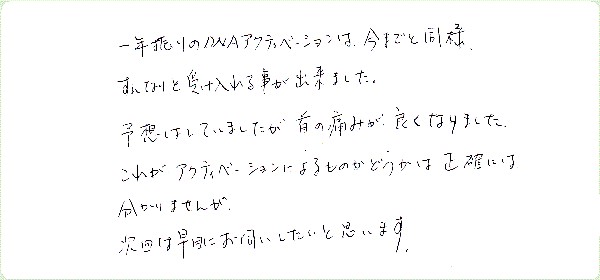 一年振りのDNAアクティベーションは、今までと同様、
すんなりと受け入れる事が出来ました。
予想はしていましたが首の痛みが良くなりました。
これがアクティベーションによるものかどうかは正確には
分かりませんが、
次回は早目にお伺いしたいと思います。